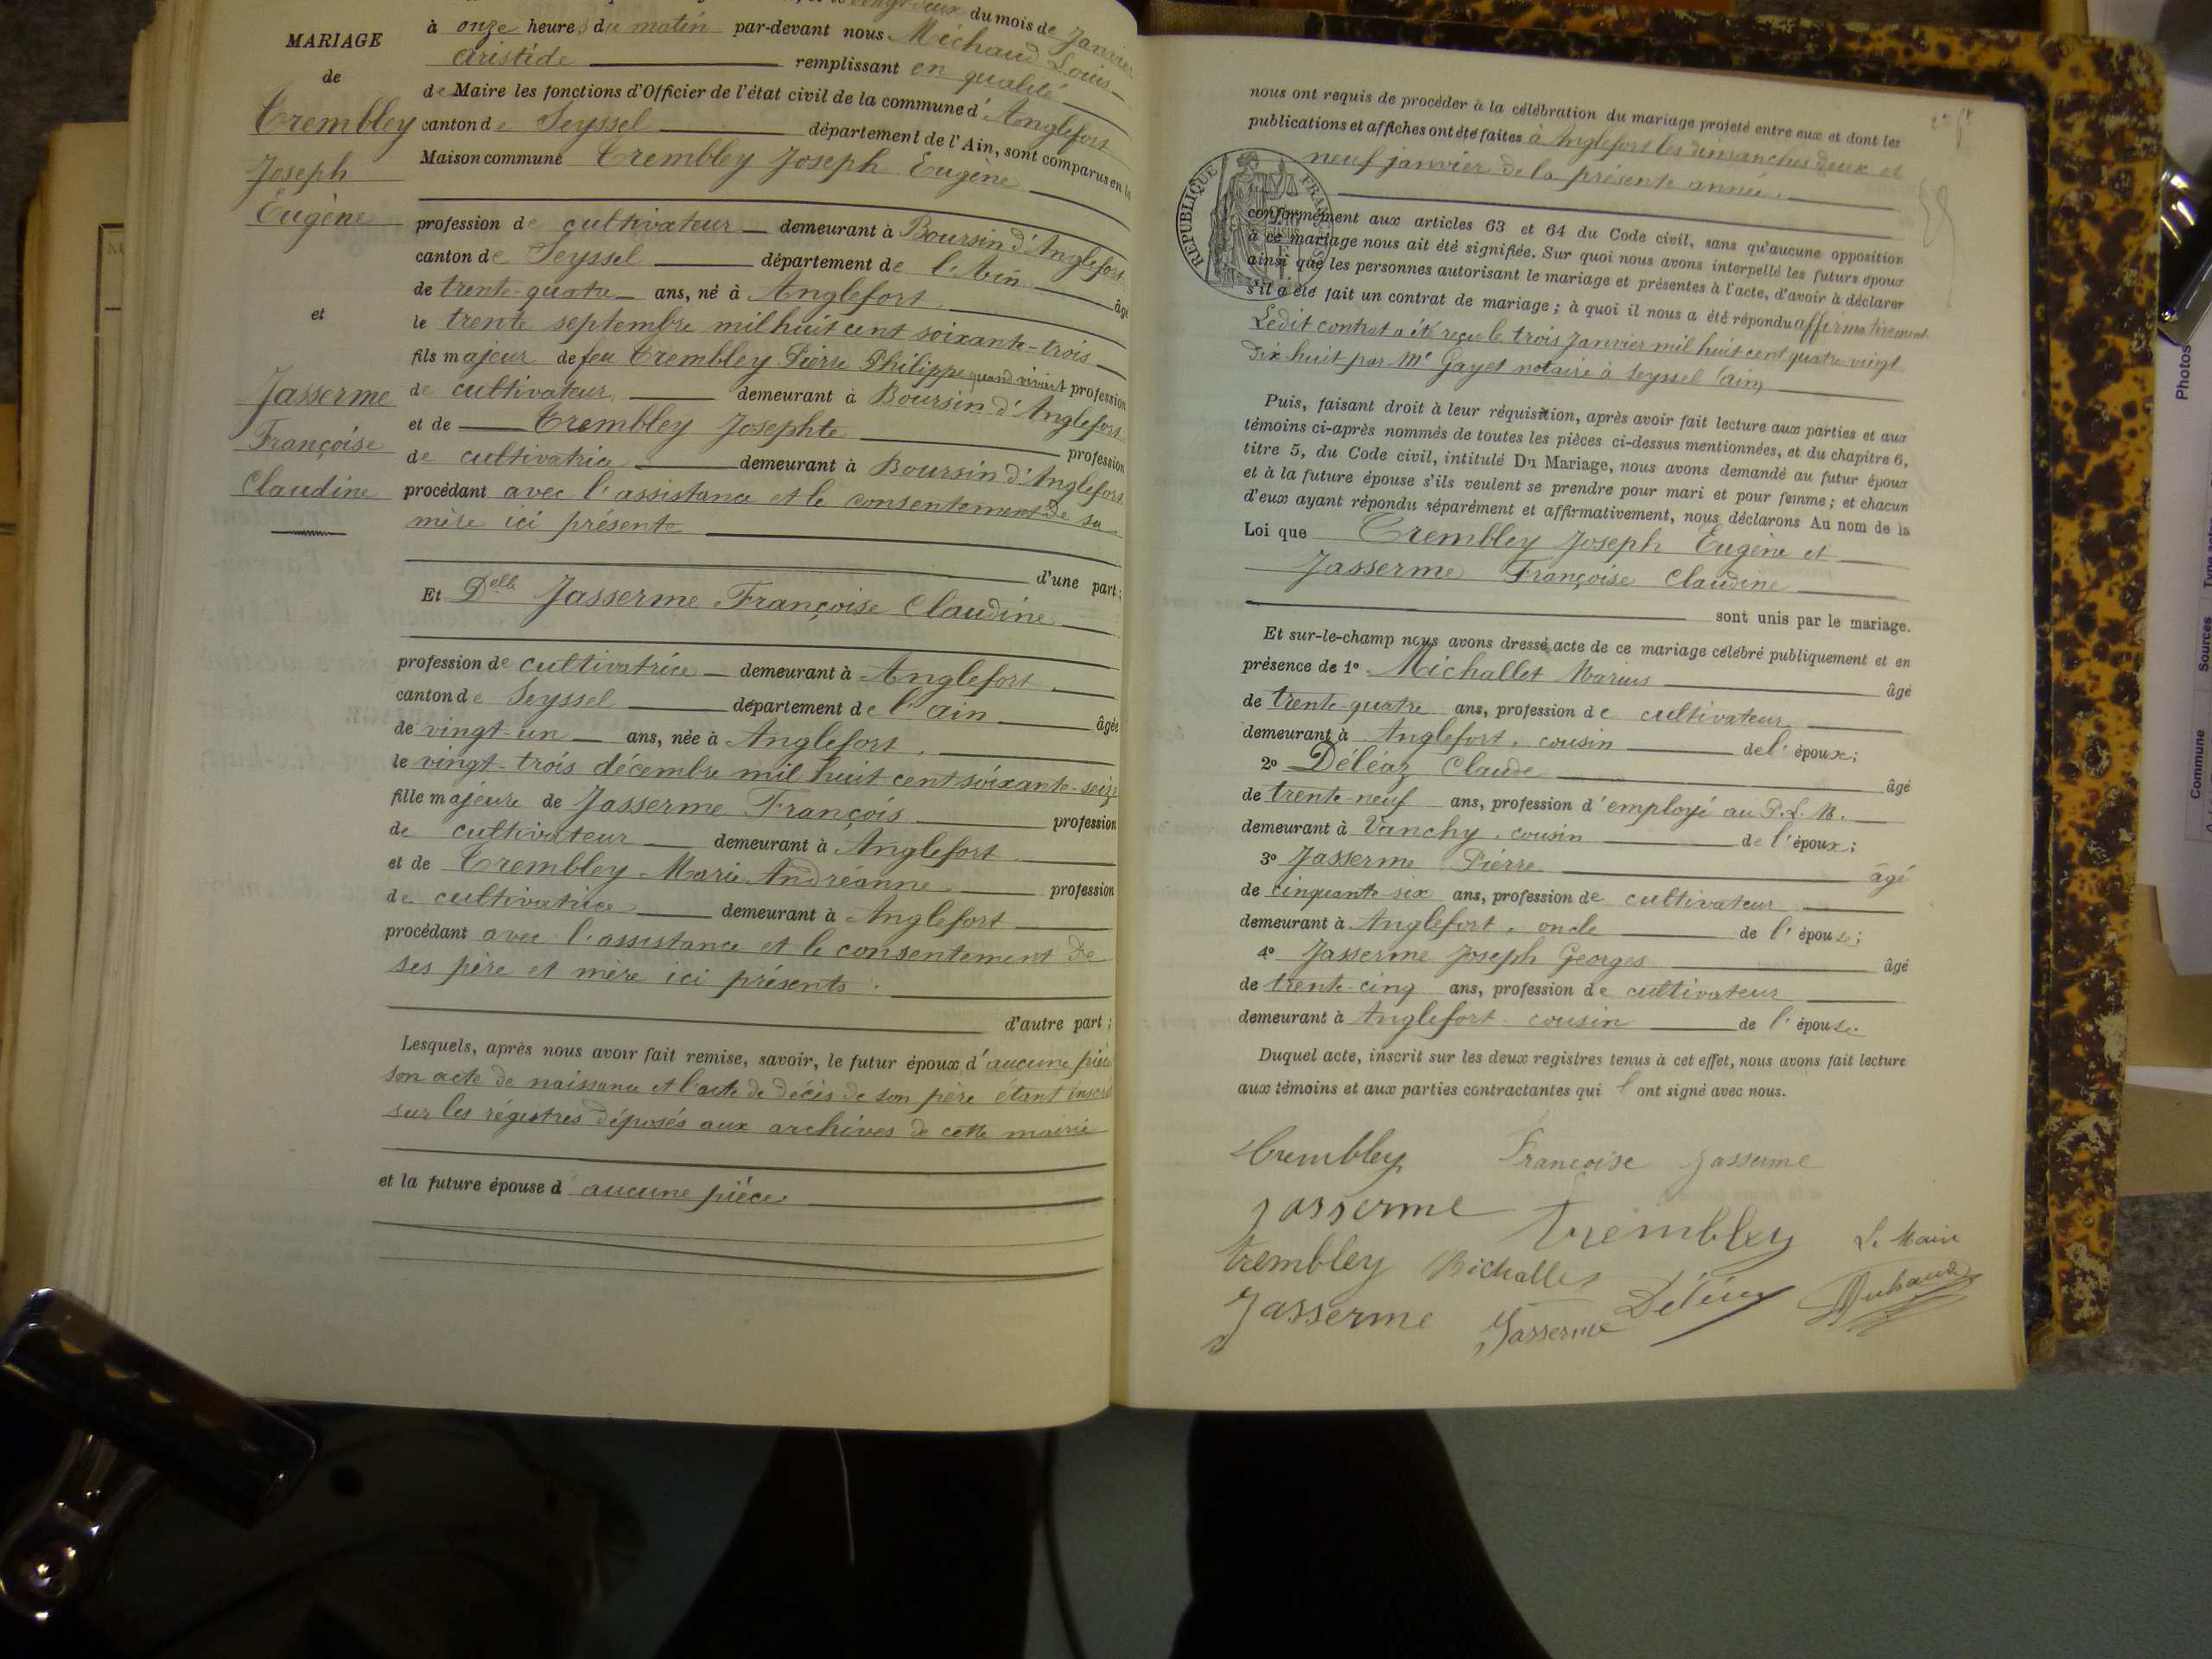 vingt-deux du mois de Janvier
MARIAGE
de
Trembley
Joseph
Eugène
et
Jasserme
Françoise
Claudine
à onze heures du matin par-devant nous Michaud Louis
Aristide remplissant en qualité
de Maire les fonctions d'Officier de l'état civil de la commune d'Anglefort
canton de Seyssel département de l'Ain, sont comparus en la
Maison commune Trembley Joseph Eugène
profession de cultivateur demeurant à Boursin d'Anglefort
canton de Seyssel département de l'Ain
âgé
de trente-quatre ans, né à Anglefort
le trente septembre mil huit cent soixante-trois
fils majeur de feu Trembley Pierre Philippe quand vivait profession
de cultivateur demeurant à Boursin d'Anglefort
et de Trembley Josephte profession
de cultivatrice demeurant à Boursin d'Anglefort
procédant avec l'assistance et le consentement de sa
mère ici présente
d'une part;
Et Delle Jasserme Françoise Claudine
profession de cultivatrice demeurant à Anglefort
canton de Seyssel département de l'ain âgée
de vingt-un ans, née à Anglefort
le vingt-trois décembre mil huit cent soixante-seize
fille majeure de Jasserme François profession
de cultivateur demeurant à Anglefort
et de Trembley Marie Andréanne profession
de cultivatrice demeurant à Anglefort
procédant avec l'assistance et le consentement de
ses père et mère ici présents.
d'autre part;
Lesquels, après nous avoir fait remise, savoir, le futur époux d'aucune pièce
son acte de naissance et l'acte de décès de son père étant inscrit
sur les régistres déposés aux archives de cette mairie
et la future épouse d'aucune pièce
nous ont requis de procéder à la célébration du mariage projeté entre eux et dont les
publications et affiches ont été faites à Anglefort les dimanches deux et
neuf janvier de la présente année.
RÉPUBLIQUE FRANÇAISE
conformément aux articles 63 et 64 du Code civil, sans qu'aucune opposition
à ce mariage nous ait été signifiée. Sur quoi nous avons interpellé les futurs époux
ainsi que les personnes autorisant le mariage et présentes à l'acte, d'avoir à déclarer
s'il a été fait un contrat de mariage; à quoi il nous a été répondu affirmativement
Ledit contrat a été reçu le trois Janvier mil huit cent quatre vingt
dix huit par Me Gayet notaire à Seyssel (ain)
Puis, faisant droit à leur réquisition, après avoir fait lecture aux parties et aux
témoins ci-après nommés de toutes les pièces ci-dessus mentionnées, et du chapitre 6,
titre 5, du Code civil, intitulé Du Mariage, nous avons demandé au futur époux
et à la future épouse s'ils veulent se prendre pour mari et pour femme; et chacun
d'eux ayant répondu séparément et affirmativement, nous déclarons Au nom de la
Loi que Trembley Joseph Eugène et
Jasserme Françoise Claudine
sont unis par le mariage.
Et sur-le-champ nous avons dressé acte de ce mariage célébré publiquement et en
présence de 1o Michallet Marius âgé
de trente-quatre ans, profession de cultivateur
demeurant à Anglefort, cousin de l'époux;
2o Déléaz Claude âgé
de trente-neuf ans, profession d'employé au P.L.M.
demeurant à Vanchy, cousin de l'époux;
3o Jasserme Pierre âgé
de cinquante-six ans, profession de cultivateur
demeurant à Anglefort, oncle de l'épouse;
4o Jasserme Joseph Georges âgé
de trente-cinq ans, profession de cultivateur
demeurant à Anglefort cousin de l'épouse.
Duquel acte, inscrit sur les deux registres tenus à cet effet, nous avons fait lecture
aux témoins et aux parties contractantes qui l'ont signé avec nous.
Trembley Françoise Jasserme
Jasserme Trembley Le Maire
trembley Michallet Déléaz
Jasserme Jasserme
Photos
Type acte
Sources
Commune